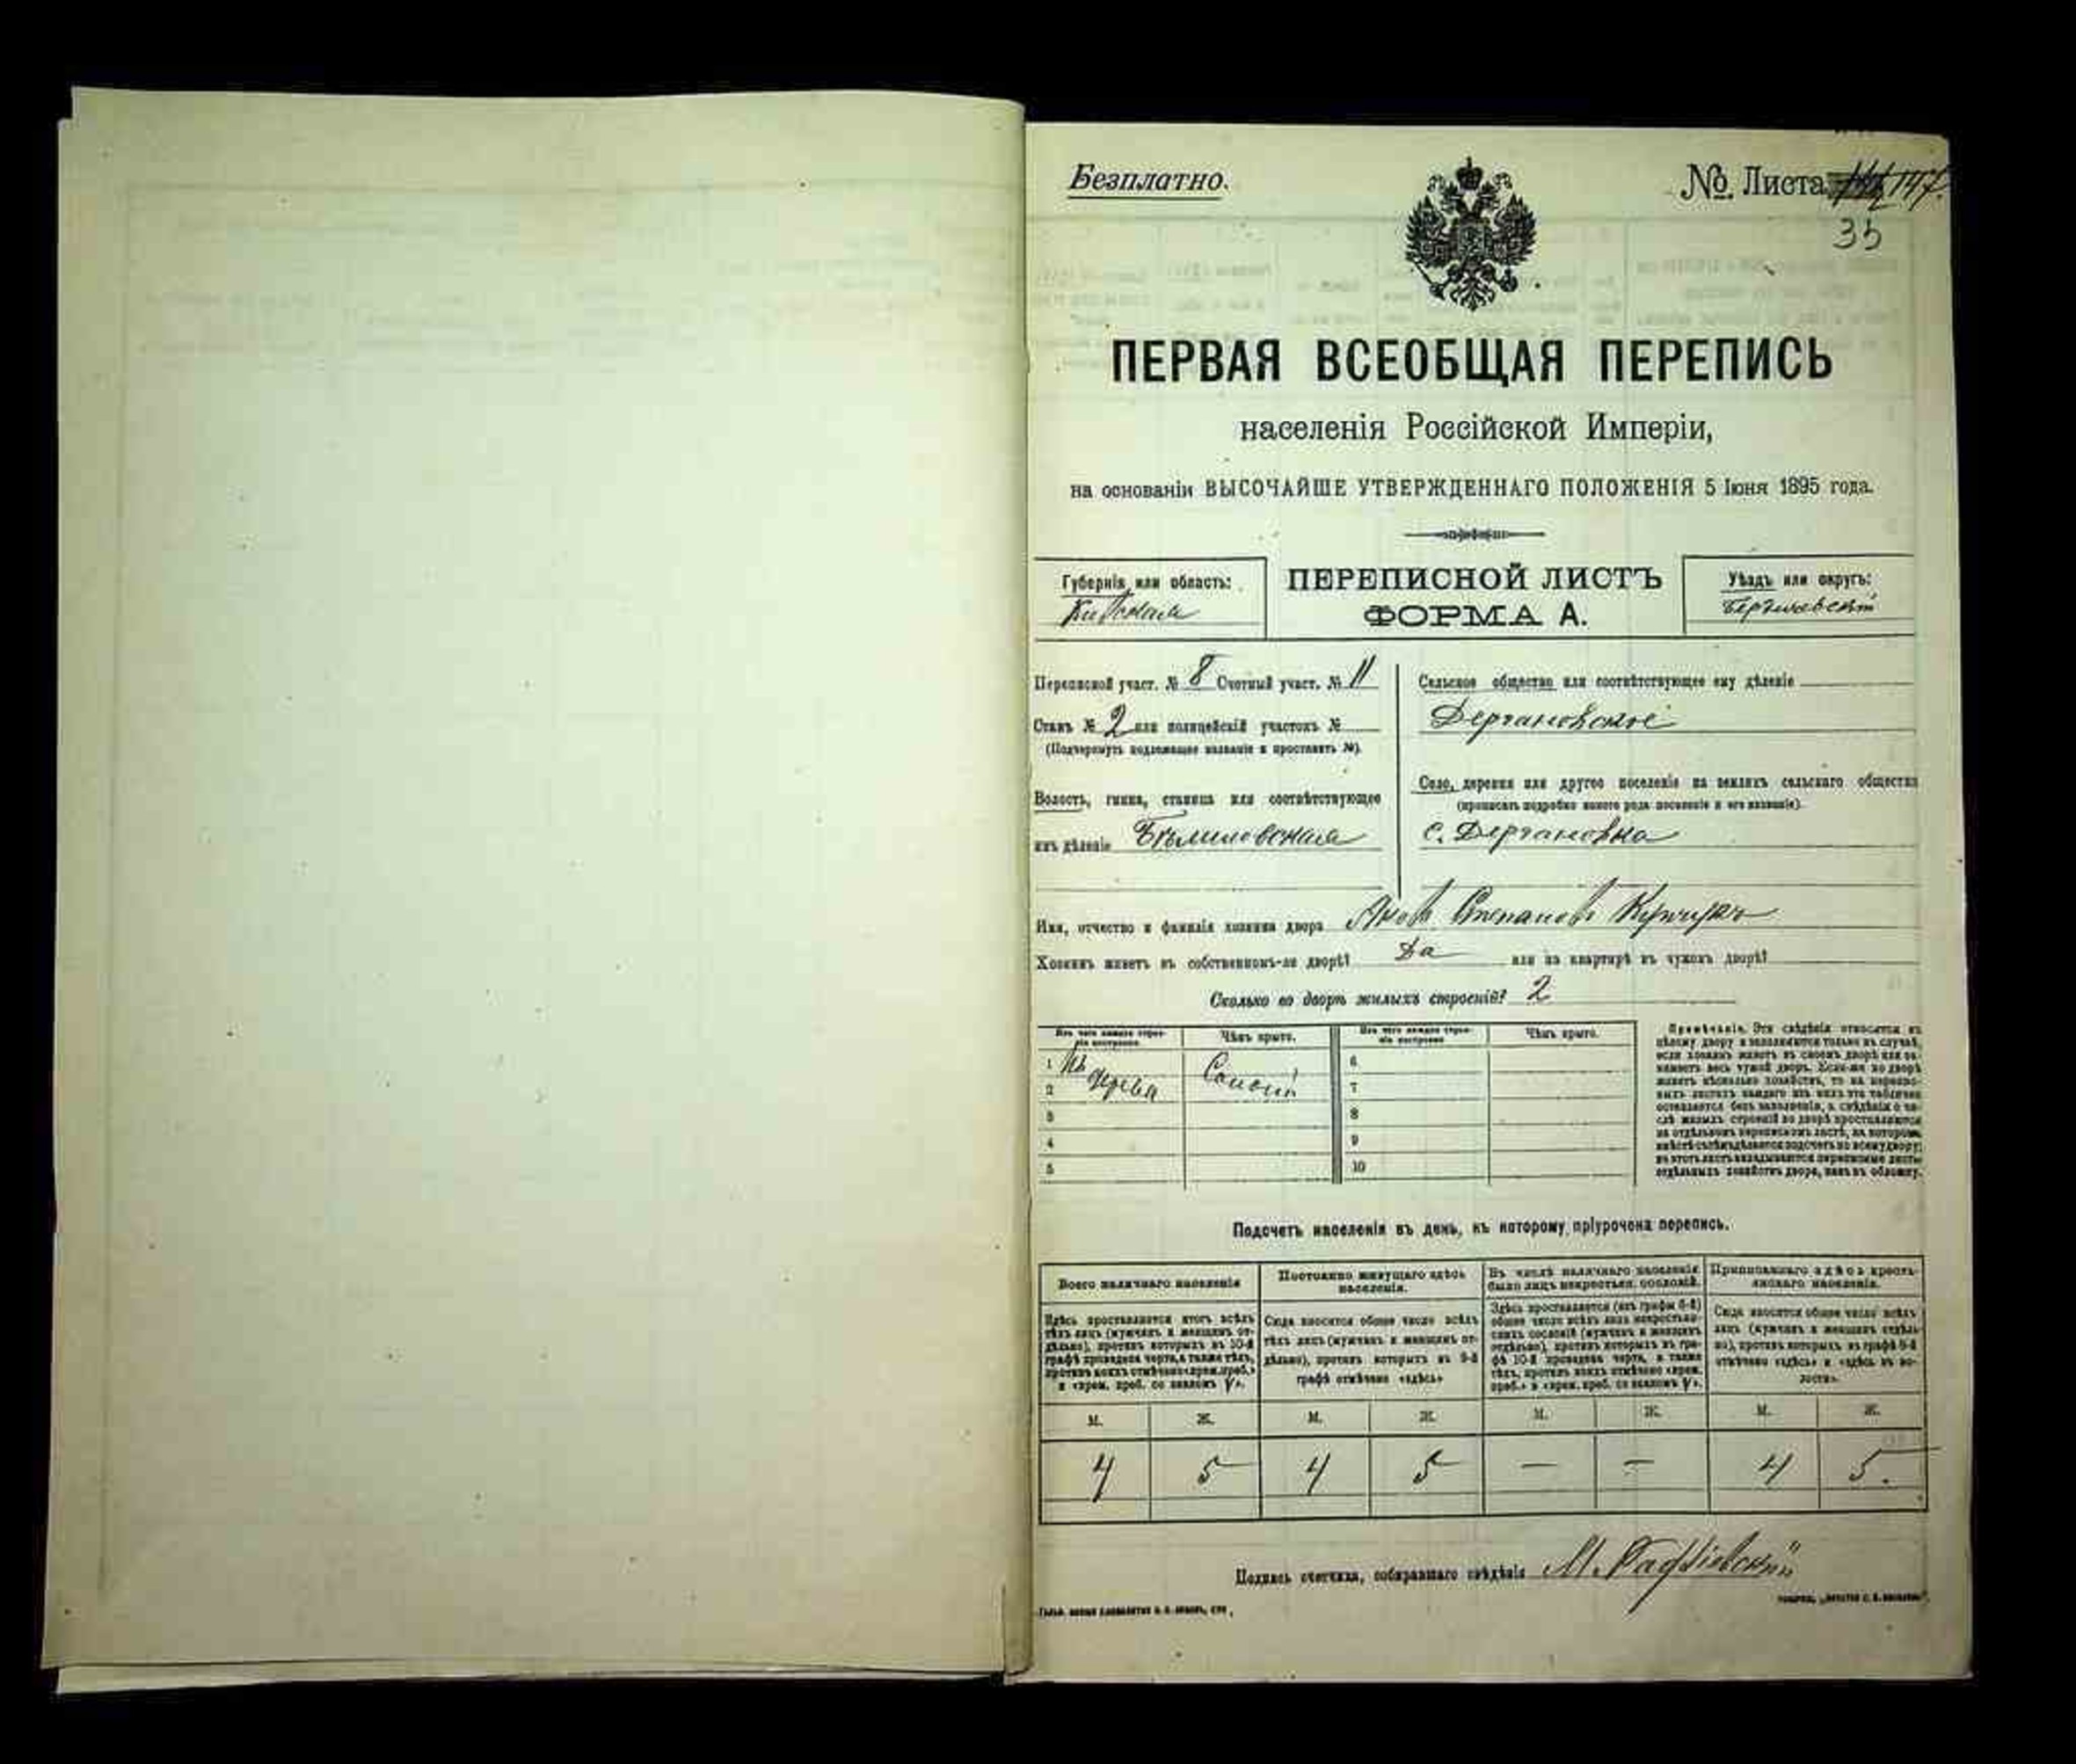 Безплатно.
№ Листа 147.
35
ПЕРВАЯ ВСЕОБЩАЯ ПЕРЕПИСЬ
населенія Россійской Имперіи,
на основаніи ВЫСОЧАЙШЕ УТВЕРЖДЕННАГО ПОЛОЖЕНІЯ 5 Іюня 1895 года.
Губернія или область:
Кіевская
ПЕРЕПИСНОЙ ЛИСТЪ
ФОРМА А.
Уѣздъ или округъ:
Бердичевскій
Переписной участ. № 8 Счетный участ. № 11
Станъ № 2 или полицейскій участокъ №
(Подчеркнуть подлежащее названіе и проставить №).
Волость, гмина, станица или соотвѣтствующее
имъ дѣленіе Бѣлиловская
Сельское общество или соотвѣтствующее ему дѣленіе
Дергановское
Село, деревня или другое поселеніе на земляхъ сельскаго общества
(прописать подробно какого рода поселеніе и его названіе).
с. Дергановка
Имя, отчество и фамилія хозяина двора Яковъ Степановъ
Хозяинъ живетъ въ собственномъ-ли дворѣ? Да или въ квартирѣ въ чужомъ дворѣ?
Сколько во дворѣ жилыхъ строеній? 2
Изъ чего каждое строеніе построено. Чѣмъ крыто. Изъ чего каждое строеніе построено Чѣмъ крыто.
1 Изъ 6
2 дерева Соломой 7
3 8
4 9
5 10
Примѣчаніе. Эти свѣдѣнія относятся къ
цѣлому двору и заполняются только въ случаѣ,
если хозяинъ живетъ въ своемъ дворѣ или занимаетъ
весь чужой дворъ. Если-же во дворѣ
живетъ нѣсколько хозяйствъ, то на переписныхъ
листахъ каждаго изъ нихъ эта табличка
оставляется безъ заполненія, а свѣдѣнія о числѣ
жилыхъ строеній во дворѣ проставляются
на отдѣльномъ переписномъ листѣ, на которомъ
вмѣстѣ съ тѣмъ дѣлается подсчетъ по всему двору;
въ этотъ листъ вкладываются переписные листы
отдѣльныхъ хозяйствъ двора, какъ въ обложку.
Подсчетъ населенія въ день, къ которому пріурочена перепись.
Всего наличнаго населенія
Постоянно живущаго здѣсь населенія.
Въ числѣ наличнаго населенія было лицъ некрестьян. сословій.
Приписаннаго здѣсь крестьянскаго населенія.
Здѣсь проставляется итогъ всѣхъ
тѣхъ лицъ (мужчинъ и женщинъ отдѣльно),
противъ которыхъ въ 10-й
графѣ проведена черта, а также тѣхъ,
противъ коихъ отмѣчено «врем. преб.»
и «врем. преб. со знакомъ V».
Сюда вносится общее число всѣхъ
тѣхъ лицъ (мужчинъ и женщинъ отдѣльно),
противъ которыхъ въ 9-й
графѣ отмѣчено «здѣсь»
Здѣсь проставляется (изъ графы 6-й)
общее число всѣхъ лицъ некрестьянскихъ
сословій (мужчинъ и женщинъ
отдѣльно), противъ которыхъ въ графѣ
10-й проведена черта, а также
тѣхъ, противъ коихъ отмѣчено «врем.
преб.» и «врем. преб. со знакомъ V».
Сюда вносится общее число всѣхъ
лицъ (мужчинъ и женщинъ отдѣльно),
противъ которыхъ въ графѣ 8-й
отмѣчено «здѣсь» и «здѣсь въ волости».
М. Ж. М. Ж. М. Ж. М. Ж.
4 5 4 5 — — 4 5.
Подпись счетчика, собиравшаго свѣдѣнія М.